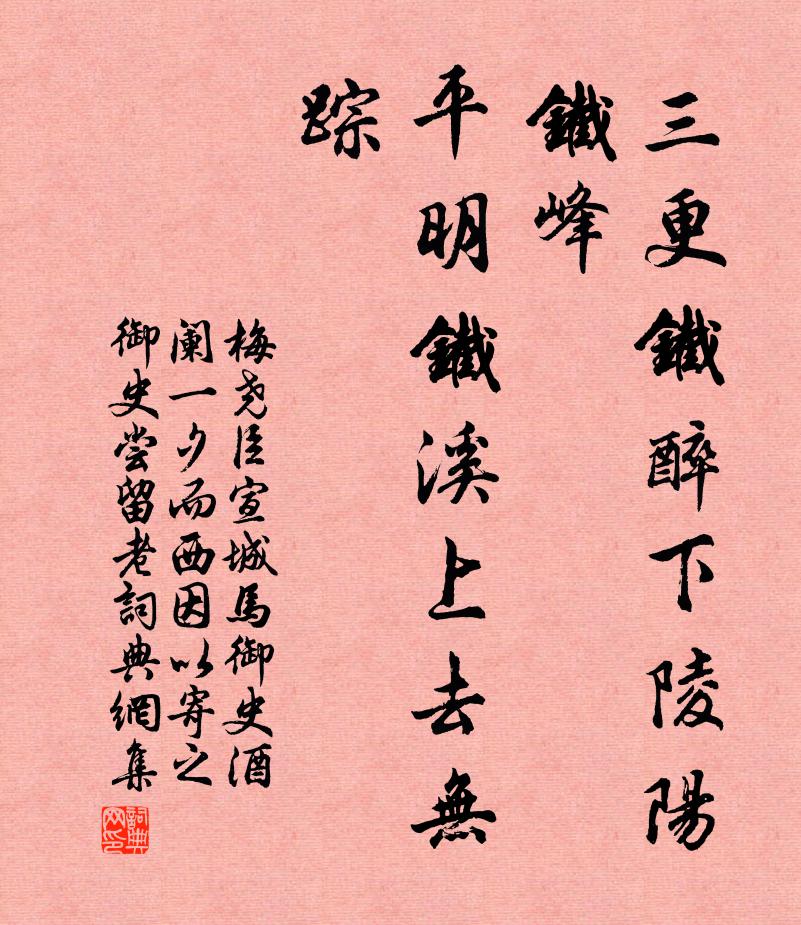 三更鐵醉下陵陽
鐵峰
平明鐵溪上去無
踪
梅尧臣宣城馬御史酒
阑一夕而西因以寄之
御史尝留老詞典網集
詞典网印